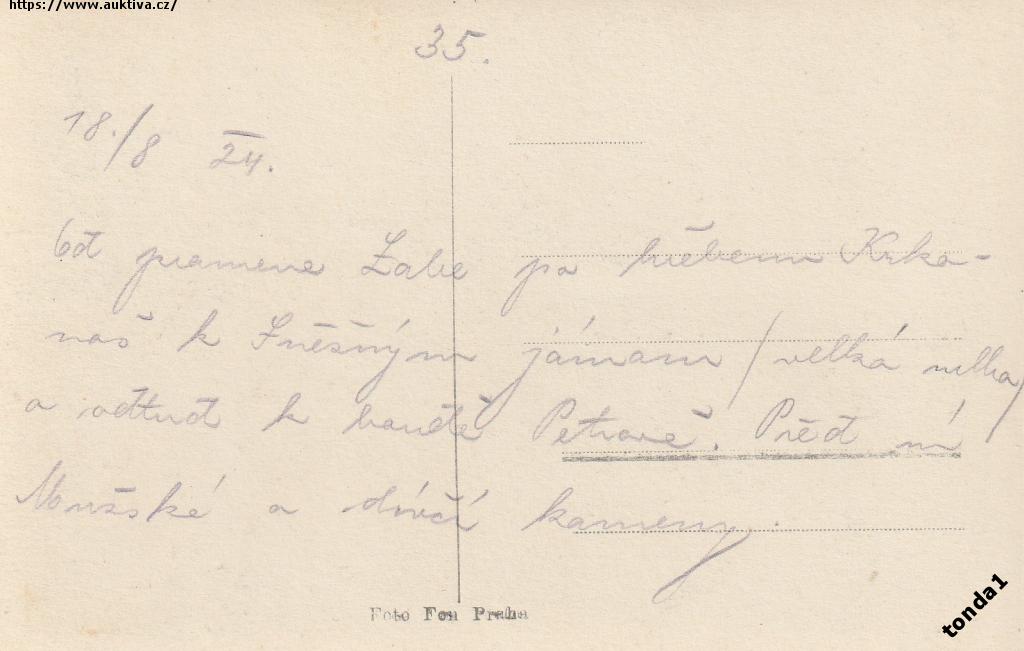 https://www.auktiva.cz/
35.
18./8 24.
Od pramene Labe po hřebenu Krko-
noš k Sněžným jámám / velká mlha /
a odtud k boudě Petrově. Před ní
Mužské a dívčí kameny.
Foto Fon Praha
tonda1